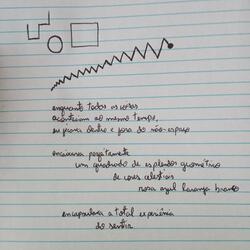 enquanto todas as coisas
acontecem ao mesmo tempo,
eu piova dentro e fora do não-espaço
encaixava perfeitamente
um quadrado de esplendor geométrico
de cores celestiais
rosa azul laranja branco
encapsulava a total experiência
do sentir